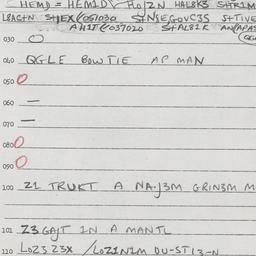 HEMD = HEM1D HoJ2N HAL8K3 SHTR1M
L8ACHN SHEX/051030 S+NSEGOVC3S S+TIVE
AH1T/037020 S+AL81K
030 O
040 QGLE BOWTIE AP MAN
050 O
060 —
070 —
080 O
090 O
100 21 TRUKT A NAJ3M GRIN3M M
101 23 GAJT IN A MANTL
110 Lo23 23X /Lo21N1M DU-ST13-N